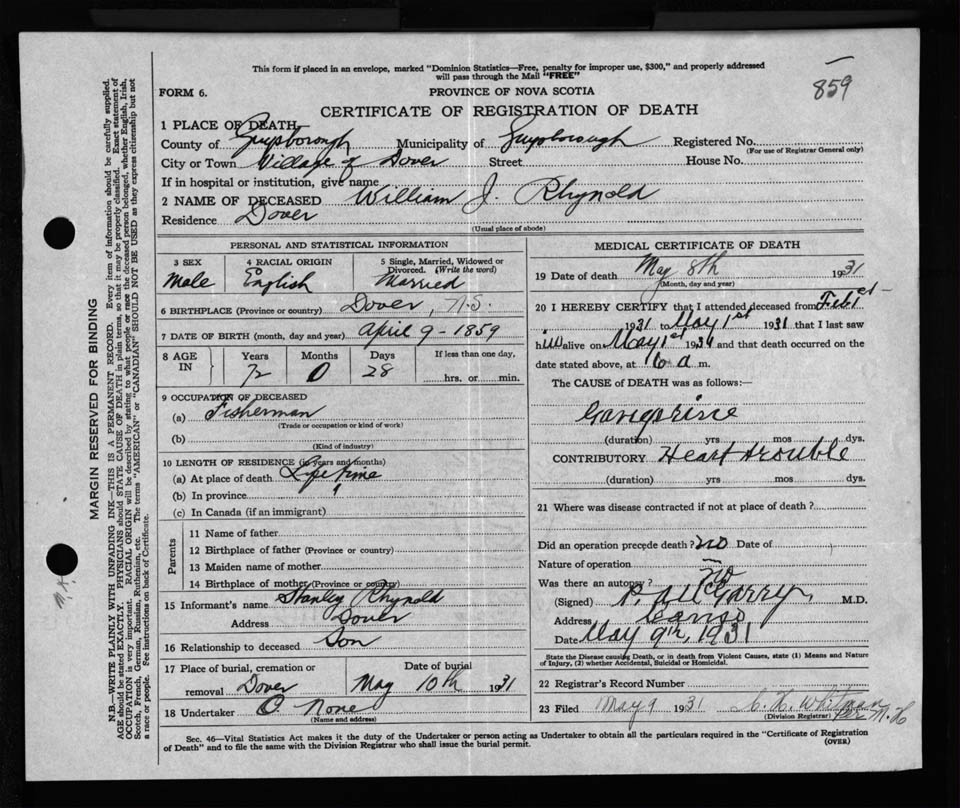 This form if placed in an envelope, marked "Dominion Statistics—Free, penalty for improper use, $300," and properly addressed
will pass through the Mail "FREE"
859
FORM 6.
PROVINCE OF NOVA SCOTIA
CERTIFICATE OF REGISTRATION OF DEATH
1 PLACE OF DEATH—
County of Guysborough Municipality of Guysborough Registered No.
(For use of Registrar General only)
City or Town Village of Dover Street House No.
If in hospital or institution, give name
2 NAME OF DECEASED William J. Rhynold
Residence Dover
(Usual place of abode)
PERSONAL AND STATISTICAL INFORMATION
3 SEX 4 RACIAL ORIGIN 5 Single, Married, Widowed or
Divorced. (Write the word)
Male English Married
6 BIRTHPLACE (Province or country) Dover, N.S.
7 DATE OF BIRTH (month, day and year) April 9 - 1859
8 AGE IN Years Months Days If less than one day,
72 0 28 hrs. or min.
9 OCCUPATION OF DECEASED
(a) Fisherman
(Trade or occupation or kind of work)
(b)
(Kind of industry)
10 LENGTH OF RESIDENCE (in years and months)
(a) At place of death Life time
(b) In province
(c) In Canada (if an immigrant)
Parents
11 Name of father
12 Birthplace of father (Province or country)
13 Maiden name of mother
14 Birthplace of mother (Province or country)
15 Informant's name Stanley Rhynold
Address Dover
16 Relationship to deceased Son
17 Place of burial, cremation or Date of burial
removal Dover May 10th 1931
18 Undertaker None
(Name and address)
MEDICAL CERTIFICATE OF DEATH
19 Date of death May 8th 1931
(Month, day and year)
20 I HEREBY CERTIFY that I attended deceased from Feb 1st
1931 to May 1st 1931 that I last saw
him alive on May 1st 1931 and that death occurred on the
date stated above, at 6 a m.
The CAUSE OF DEATH was as follows:—
Gangrine
(duration) yrs mos dys.
CONTRIBUTORY Heart trouble
(duration) yrs mos dys.
21 Where was disease contracted if not at place of death?
Did an operation precede death? no Date of
Nature of operation
Was there an autopsy? no
(Signed) P. A. McGarry M.D.
Address Canso
Date May 9th, 1931
State the Disease causing Death, or in death from Violent Causes, state (1) Means and Nature
of Injury, (2) whether Accidental, Suicidal or Homicidal.
22 Registrar's Record Number
23 Filed May 9 1931 C. H. Whitman
(Division Registrar) Per
Sec. 46—Vital Statistics Act makes it the duty of the Undertaker or person acting as Undertaker to obtain all the particulars required in the "Certificate of Registration
of Death" and to file the same with the Division Registrar who shall issue the burial permit.
(OVER)
MARGIN RESERVED FOR BINDING
N.B.—WRITE PLAINLY WITH UNFADING INK—THIS IS A PERMANENT RECORD. Every item of information should be carefully supplied.
AGE should be stated EXACTLY. PHYSICIANS should STATE CAUSE OF DEATH in plain terms, so that it may be properly classified. Exact statement of
OCCUPATION is very important. RACIAL ORIGIN will be described by stating to what people or race the deceased person belonged, whether English, Irish,
Scotch, French, German, Russian, Ruthenian, etc. The terms "AMERICAN" or "CANADIAN" SHOULD NOT BE USED as they express citizenship but not
a race or people. See instructions on back of Certificate.